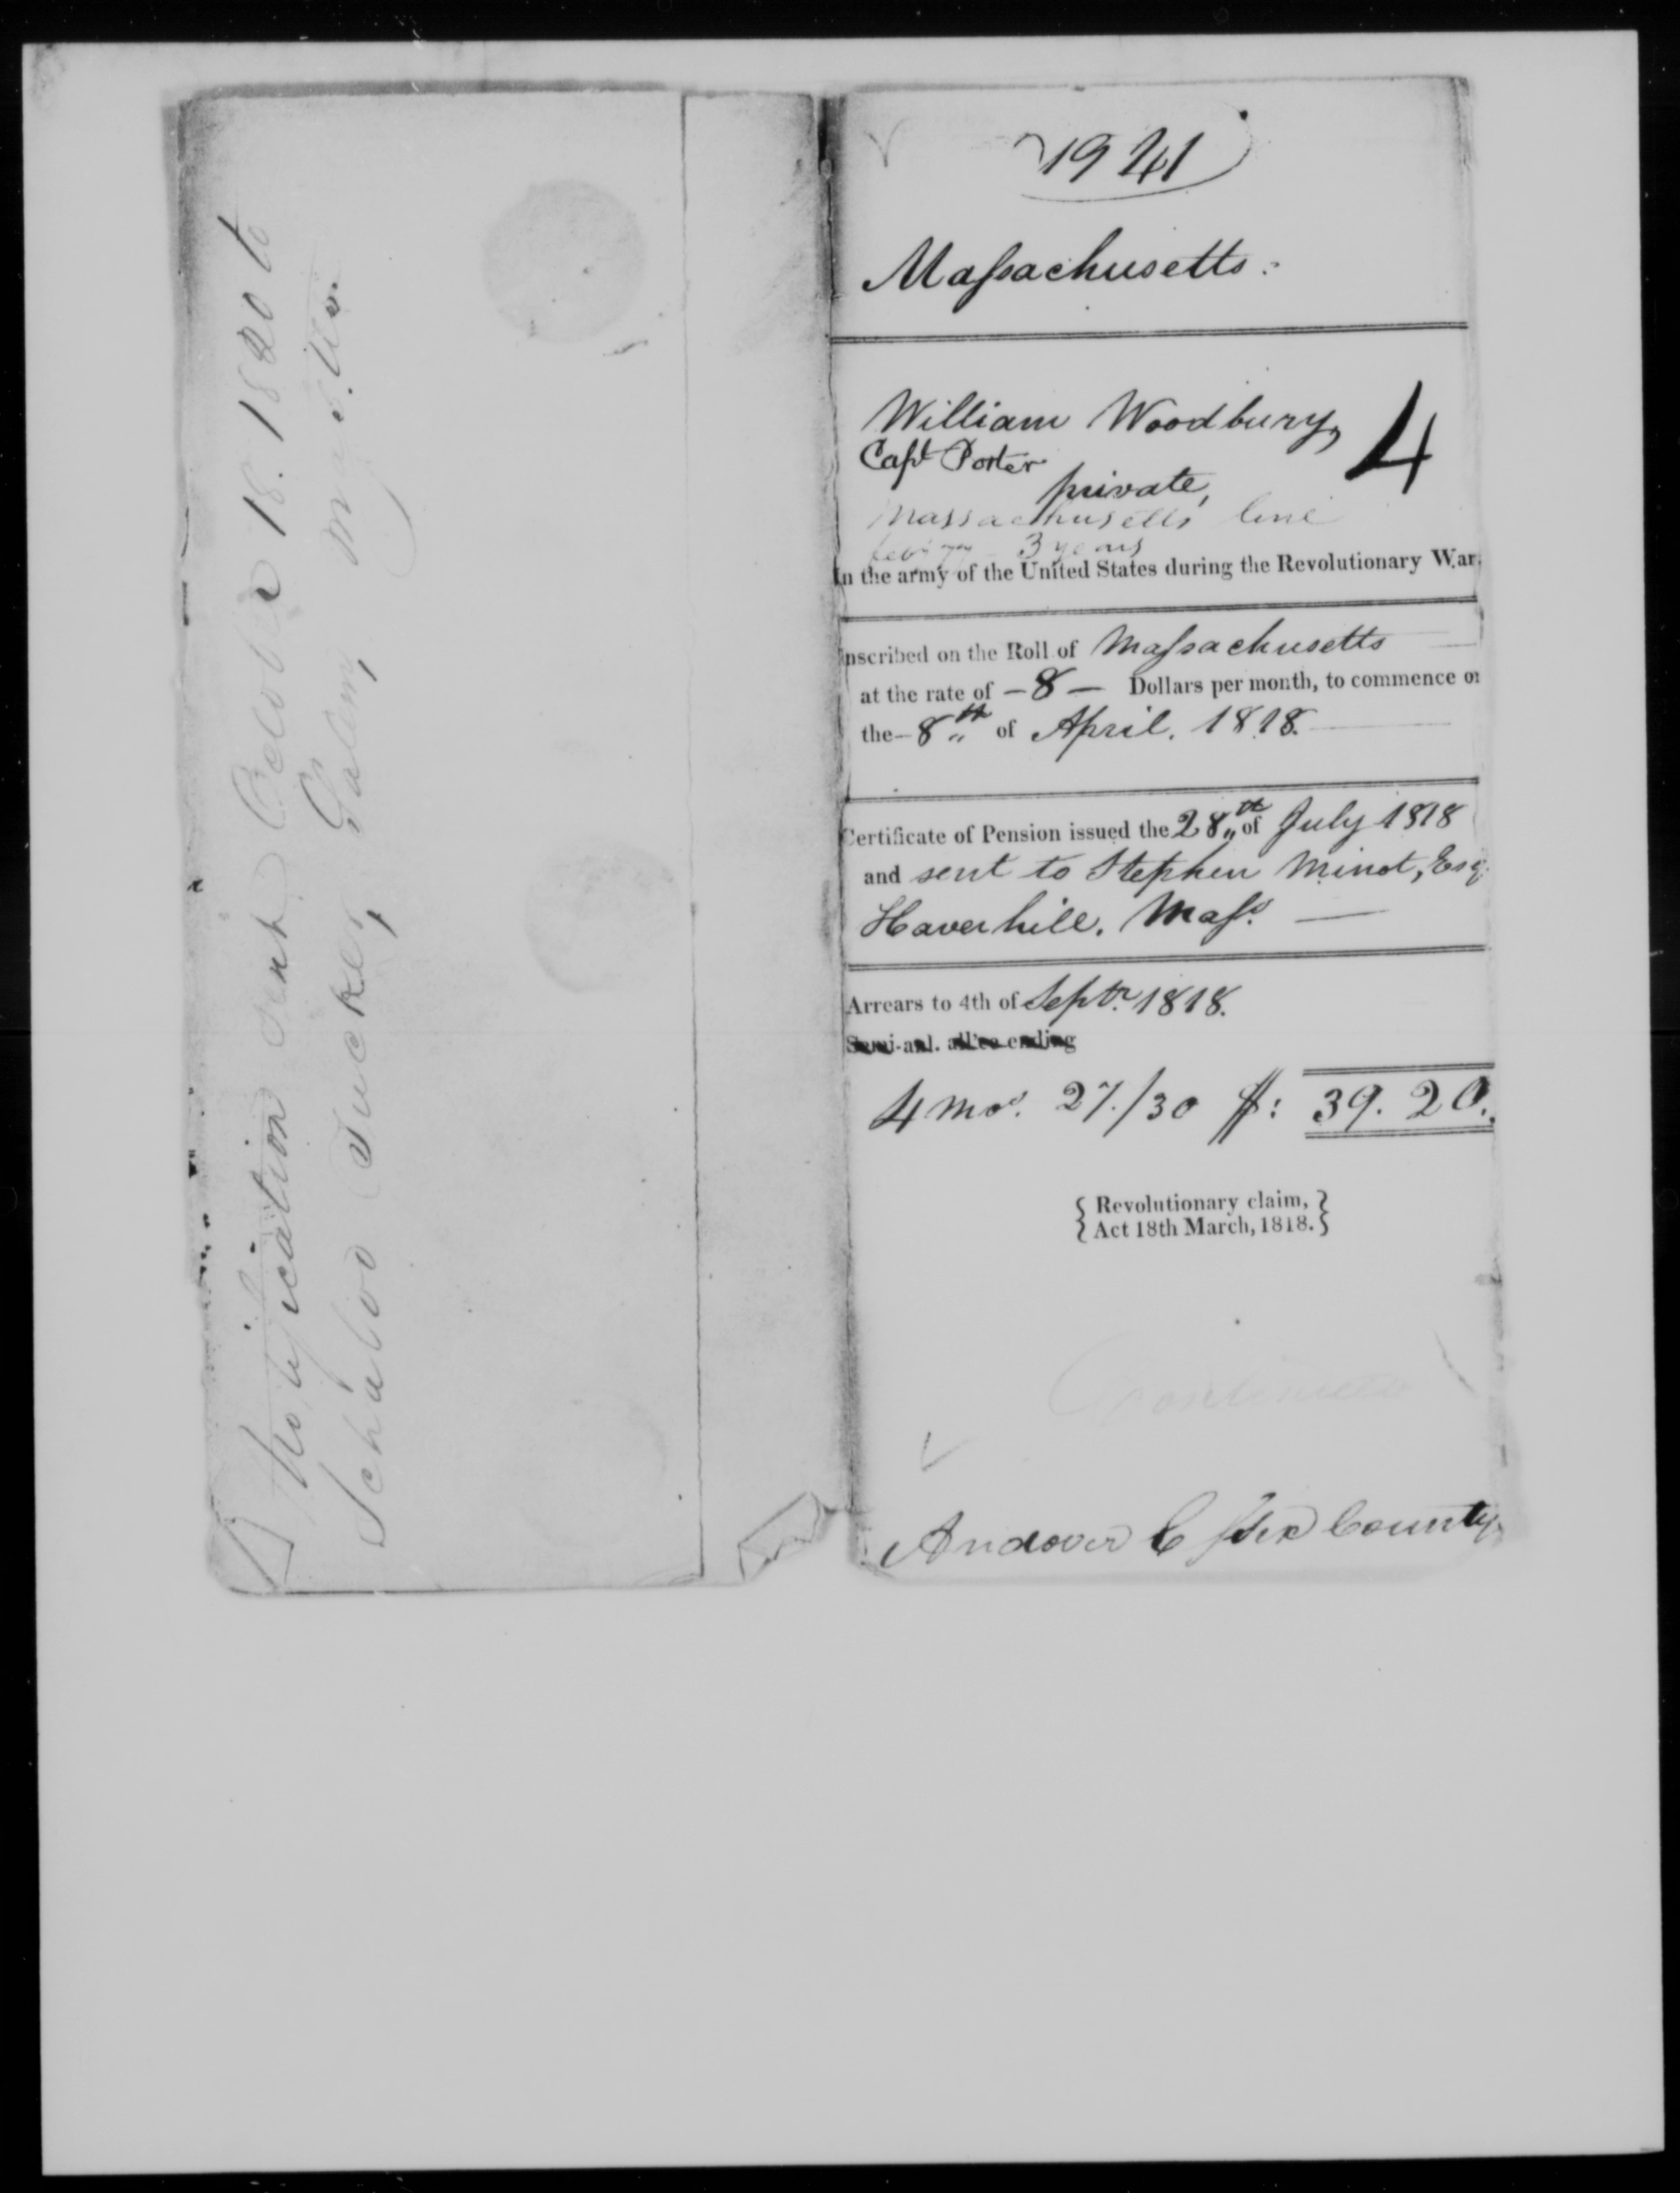 Notification sent October 18. 1820 to
Ichabod Tucker, Salem,
1941
Massachusetts.
William Woodbury,
4
Capt Porter
private,
Massachusetts line
3 years
In the army of the United States during the Revolutionary War.
Inscribed on the Roll of Massachusetts
at the rate of - 8 - Dollars per month, to commence on
the - 8th of April. 1818.
Certificate of Pension issued the 28th of July 1818
and sent to Stephen Minot, Esq.
Haverhill. Mass.
Arrears to 4th of Septr. 1818.
Semi-anl. all'ce ending
4 mos. 27/30 $: 39.20.
{ Revolutionary claim, }
{ Act 18th March, 1818. }
Andover Essex County